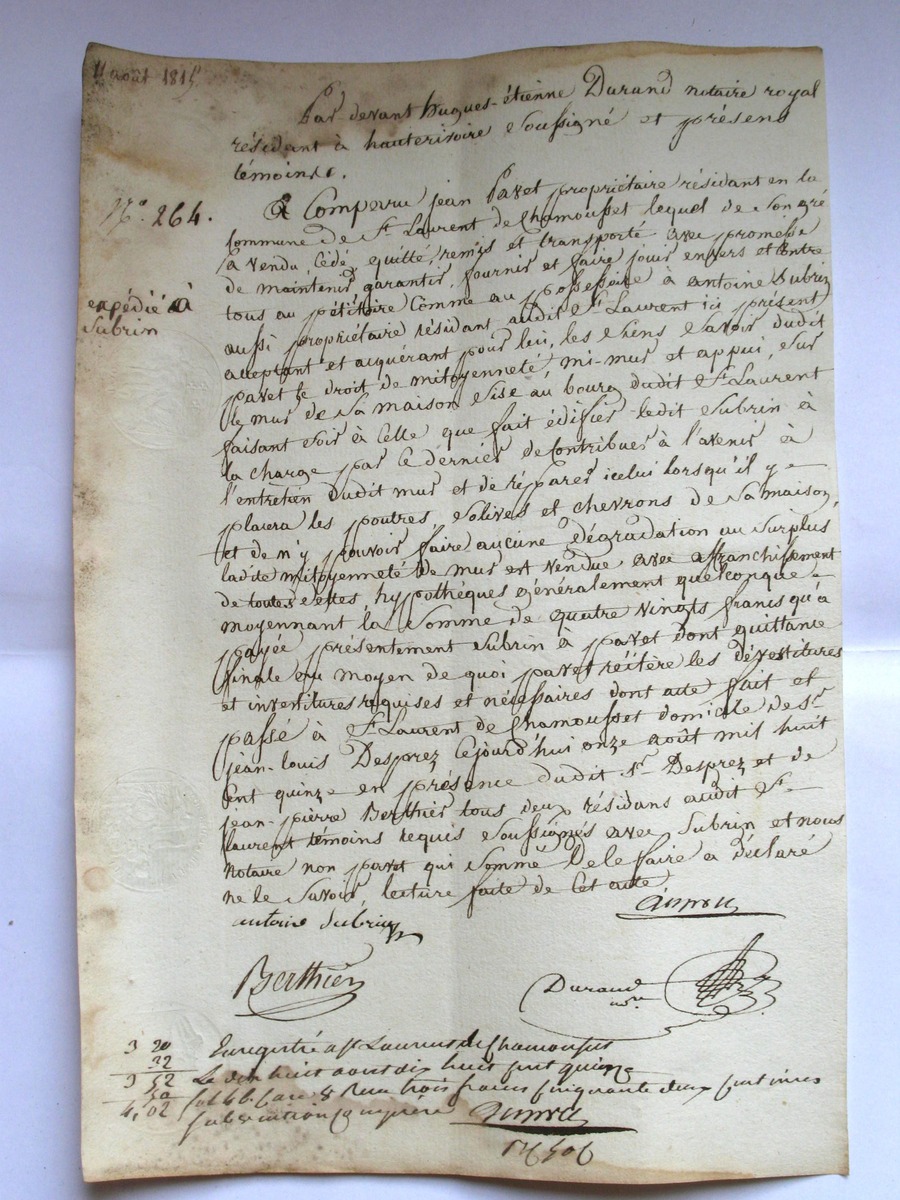 11 août 1815
Par devant hugues-étienne Durand notaire royal
résidant à hauterivoire soussigné et présens
témoins.
N.° 264.
A Comparu jean Pavet propriétaire résidant en la
Commune de St. Laurent de Chamousset lequel de son gré
a vendu, cédé, quitté, remis et transporté avec promesse
de maintenir garantir, fournir et faire jouir envers et contre
tous au pétitoire Comme au possessoire à antoine Subrin
expédié à
Subrin
aussi propriétaire résidant audit St. Laurent ici présent
acceptant et acquérant pour lui, les siens Savoir dudit
pavet le droit de mitoyenneté, mi-mur et appui, sur
le mur de sa maison sise au bourg dudit St. Laurent
faisant soir à Celle que fait édifier ledit Subrin à
la charge par ce dernier de Contribuer à l'avenir à
l'entretien dudit mur et de réparer icelui lorsqu'il y
placera les poutres solives et chevrons de sa maison,
et de n'y pouvoir faire aucune dégradation au surplus
ladite mitoyenneté de mur est vendue avec affranchissement
de toutes dettes, hypothèques généralement quelconque
moyennant la somme de quatre vingts francs qu'a
payée présentement Subrin à pavet dont quittance
finale au moyen de quoi pavet réitère les dévestitures
et investitures requises et nécessaires dont acte fait et
passé à St. Laurent de Chamousset domicile de sr.
jean-louis Desprez Cejourd'hui onze août mil huit
Cent quinze en présence dudit sr. Desprez et de
jean-pierre Berthier tous deux résidans audit St.
Laurent témoins requis soussignés avec Subrin et nous
Notaire non pavet qui sommé de le faire a déclaré
ne le Savoir, lecture faite de Cet acte
antoine Subrin
Berthier
Durand
nre
3 20
32
3 52
50
4,02
Enregistré a St Laurent de Chamousset
Le dix huit aout dix huit cent quinze
Reçu trois francs cinquante deux centimes
subvention comprise